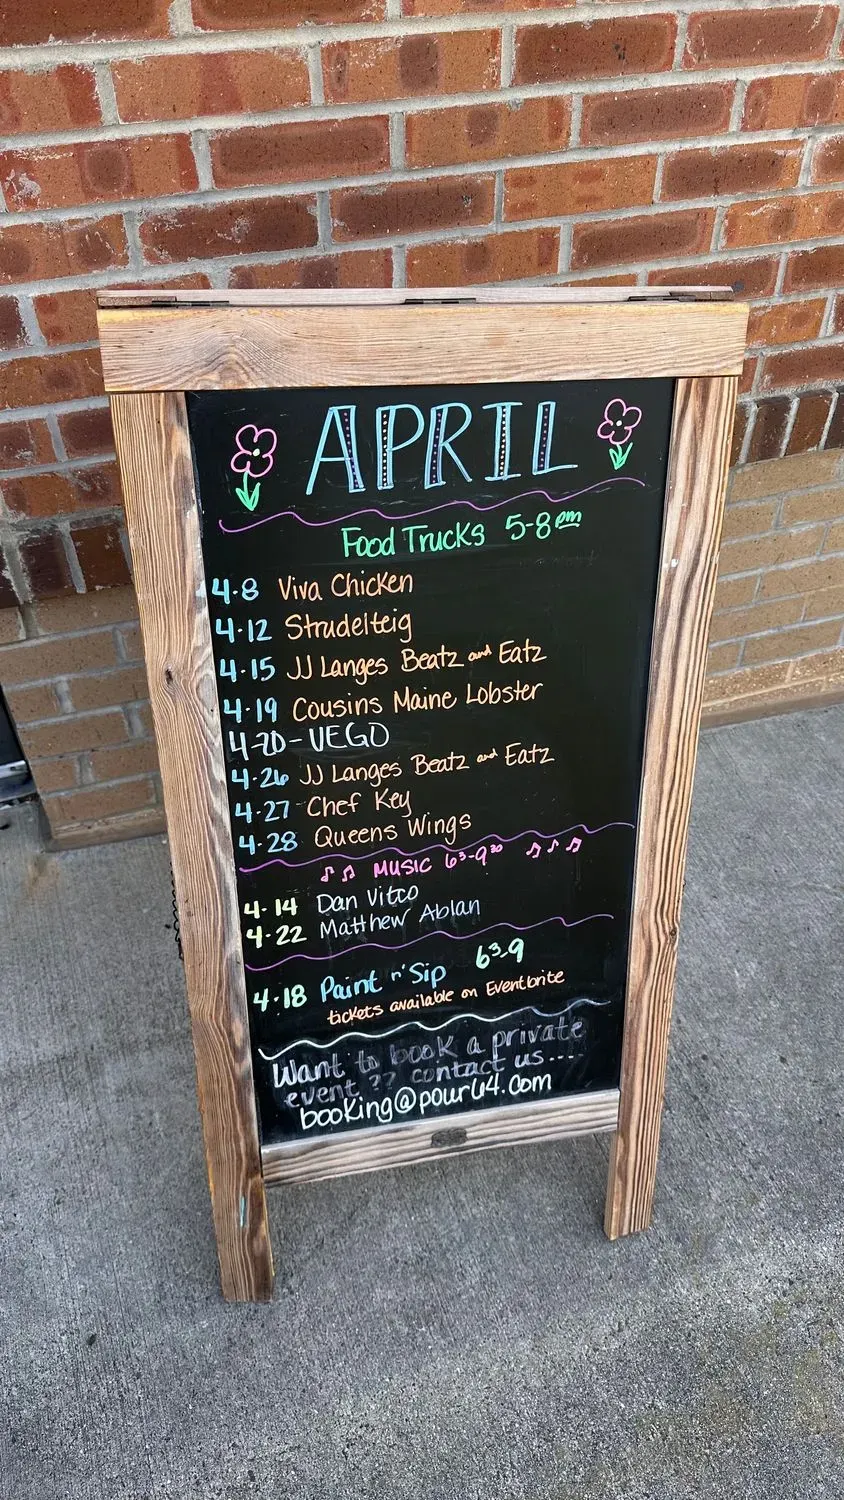 APRIL
Food Trucks 5-8pm
4-8 Viva Chicken
4-12 Strudelteig
4-15 JJ Langes Beatz and Eatz
4-19 Cousins Maine Lobster
4-20-VEGO
4-26 JJ Langes Beatz and Eatz
4-27 Chef Key
4-28 Queens Wings
MUSIC 6³-9³⁰
4-14 Dan Vitco
4-22 Matthew Ablan
4-18 Paint n' Sip 6³-9
tickets available on Eventbrite
Want to book a private
event?? contact us....
booking@pour64.com